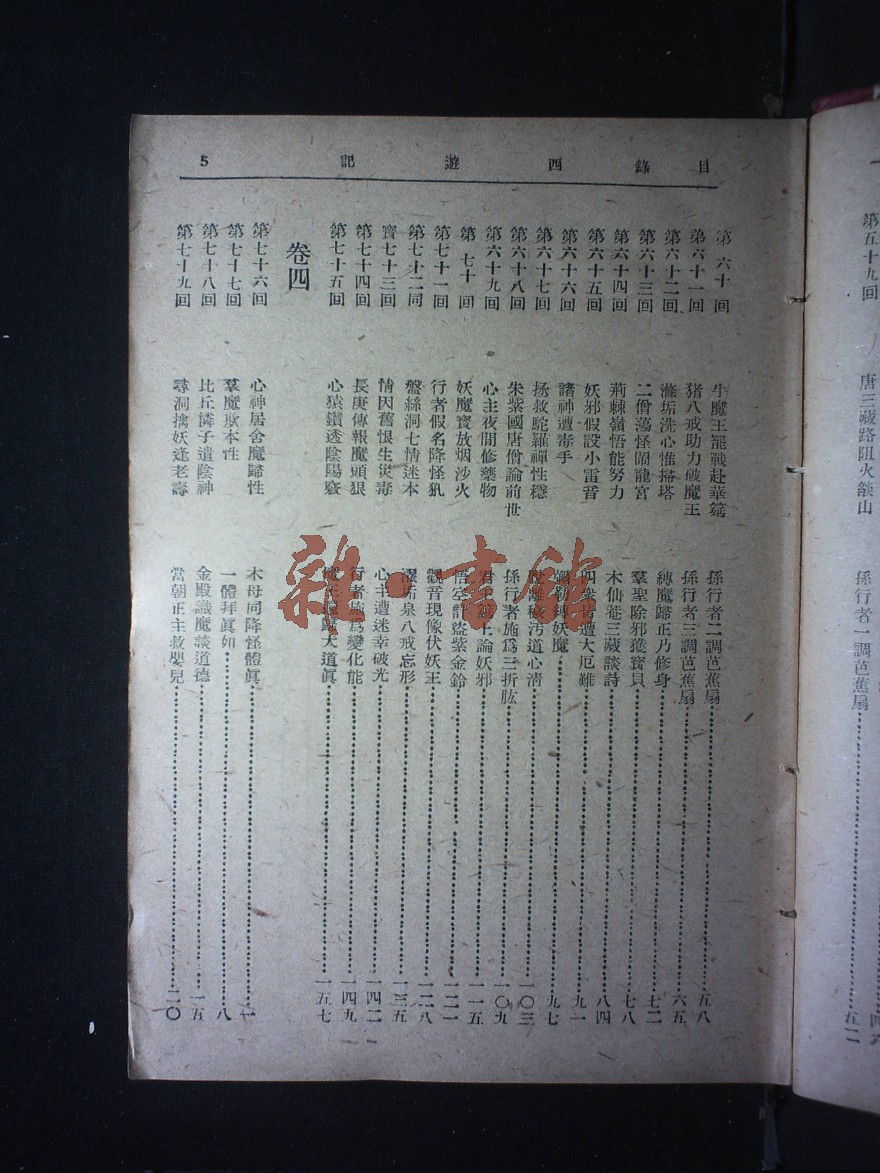 目錄　西遊記　5
第六十回　牛魔王罷戰赴華筵　孫行者二調芭蕉扇　五八
第六十一回　猪八戒助力破魔王　孫行者三調芭蕉扇　六五
第六十二回　滌垢洗心惟掃塔　縛魔歸正乃修身　七二
第六十三回　二僧蕩怪鬧龍宮　羣聖除邪獲寶貝　七八
第六十四回　荊棘嶺悟能努力　木仙菴三藏談詩　八四
第六十五回　妖邪假設小雷音　四衆皆遭大厄難　九一
第六十六回　諸神遭毒手　彌勒縛妖魔　九七
第六十七回　拯救駝羅禪性穩　脫離穢汚道心淸　一〇三
第六十八回　朱紫國唐僧論前世　孫行者施爲三折肱　一〇九
第六十九回　心主夜間修藥物　君王筵上論妖邪　一一五
第七十回　妖魔寶放烟沙火　悟空計盜紫金鈴　一二一
第七十一回　行者假名降怪犼　觀音現像伏妖王　一二八
第七十二同　盤絲洞七情迷本　濯垢泉八戒忘形　一三五
寶七十三回　情因舊恨生災毒　心主遭迷幸破光　一四二
第七十四回　長庚傳報魔頭狠　行者施爲變化能　一四九
第七十五回　心猿鑽透陰陽竅　魔王還歸大道眞　一五七
卷四
第七十六回　心神居舍魔歸性　木母同降怪體眞　一
第七十七回　羣魔欺本性　一體拜眞如　八
第七十八回　比丘憐子遣陰神　金殿識魔談道德　一五
第七十九回　尋洞擒妖逢老壽　當朝正主救嬰兒　二〇
第五十九回　唐三藏路阻火燄山　孫行者一調芭蕉扇　五二
雜·書館